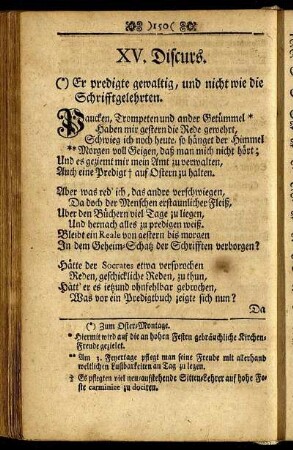 )150(
XV. Discurs.
(*) Er predigte gewaltig, und nicht wie die
Schrifftgelehrten.
Paucken, Trompeten und ander Getümmel *
Haben mir gestern die Rede gewehrt,
Schwieg ich noch heute so hänget der Himmel
** Morgen voll Geigen, daß man mich nicht hört;
Und es geziemt mir mein Amt zu verwalten,
Auch eine Predigt † auf Ostern zu halten.
Aber was red' ich, das andre verschwiegen,
Da doch der Menschen erstaunlicher Fleiß,
Uber den Büchern viel Tage zu liegen,
Und hernach alles zu predigen weiß.
Bleibt ein Reale von gestern bis morgen
In dem Geheim-Schatz der Schrifften verborgen?
Hätte der Socrates etwa versprochen
Reden, geschickliche Reden, zu thun,
Hätt' er es ietzund ohnfehlbar gebrochen,
Was vor ein Predigtbuch zeigte sich nun?
Da
(*) Zum Oster-Montage.
* Hiermit wird auf die an hohen Festen gebräuchliche Kirchen-
Freude gezielet.
** Am 3. Feyertage pflegt man seine Freude mit allerhand
weltlichen Lustbarkeiten an Tag zu legen.
† Es pflegten viel neu-aufstehende Sitten-Lehrer auf hohe Fe-
ste carminice zu dociren.